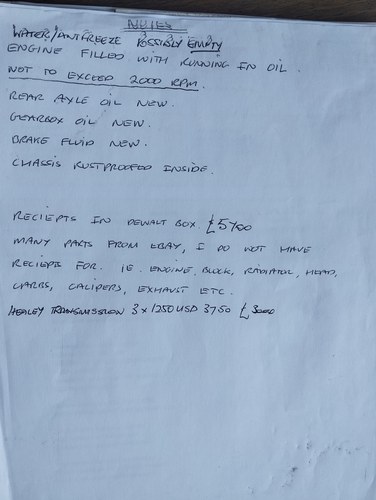 NOTES
WATER/ANTIFREEZE POSSIBLY EMPTY
ENGINE FILLED WITH RUNNING IN OIL.
NOT TO EXCEED 2000 RPM.
REAR AXLE OIL NEW.
GEARBOX OIL NEW.
BRAKE FLUID NEW.
CHASSIS RUSTPROOFED INSIDE.
RECIEPTS IN DEWALT BOX £5700
MANY PARTS FROM EBAY, I DO NOT HAVE
RECIEPTS FOR. IE. ENGINE, BLOCK, RADIATOR, HEAD,
CARBS, CALIPERS, EXHAUST ETC.
HEALEY TRANSMISSION 3 x 1250 USD 3750 £3000